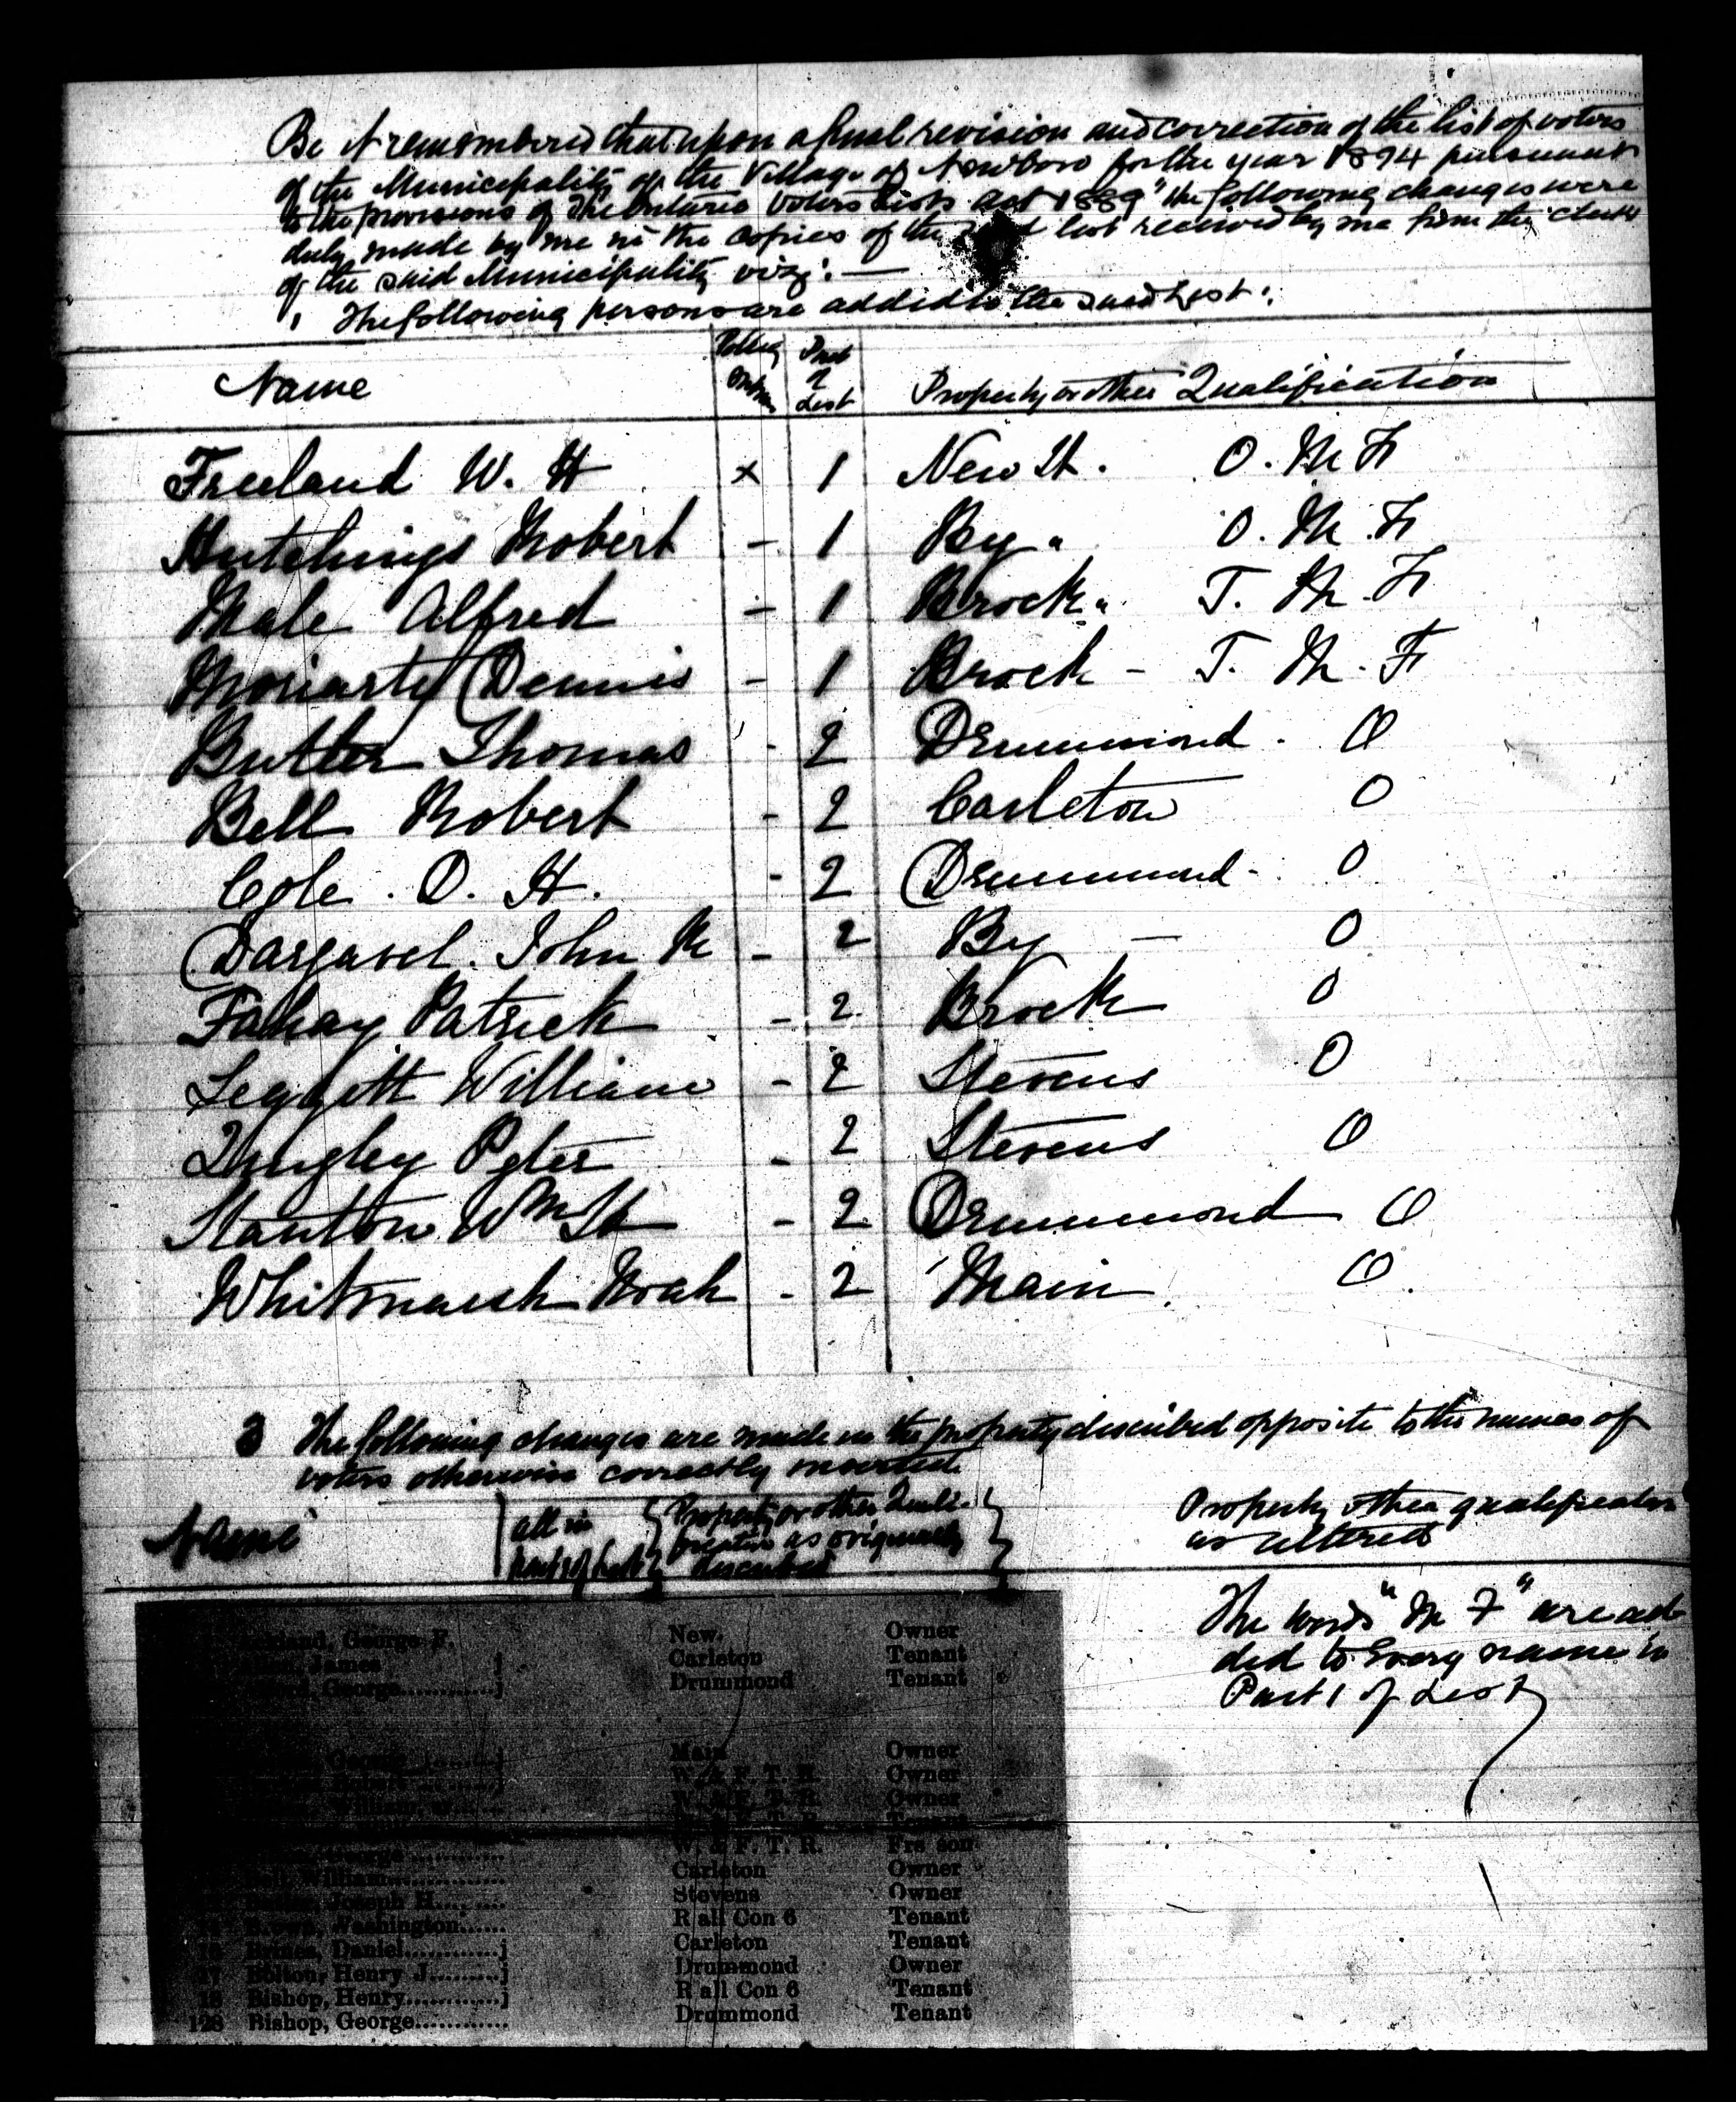 Be it remembered that upon a final revision and correction of the list of voters
of the Municipality of the Village of Newboro for the year 1894 pursuant
to the provisions of "The Ontario Voters Lists Act 1889" the following changes were
duly made by me in the copies of the list received by me from the clerk
of the said Municipality viz: —
1 The following persons are added to the said List:
Name Polling Part of List Property or other Qualification
Freeland W. H x 1 New St. O. M F
Hutchings Robert - 1 By " O. M. F
Male Alfred - 1 Brock " T. M. F
Moriarty Dennis - 1 Brock - T. M. F
Butler Thomas - 2 Drummond - O
Bell Robert - 2 Carleton O
Cole. O. H. - 2 Drummond - O
Dargavel. John R - 2 By — O
Fahay Patrick - 2 Brock O
Leggett William - 2 Stevens O
Peter - 2 Stevens O
Stanton Wm H - 2 Drummond O
Whitmarsh Noah - 2 Main O
3 The following changes are made in the property described opposite to the names of
voters otherwise correctly inserted
Name all in part 1 of list Property or other Qualification as originally described Property other qualification as altered
The words "M F" are added to Every name in Part 1 of List
George F. New. Owner
James j Carleton Tenant
George............j Drummond Tenant
Main Owner
W. & F. T. R. Owner
W. & F. T. R. Owner
W. & F. T. R. Tenant
W. & F. T. R. Frs son
William............ Carleton Owner
Joseph H........ Stevens Owner
Washington...... R all Con 6 Tenant
Daniel............j Carleton Tenant
17 Bolton, Henry J.........j Drummond Owner
18 Bishop, Henry............j R all Con 6 Tenant
128 Bishop, George............ Drummond Tenant